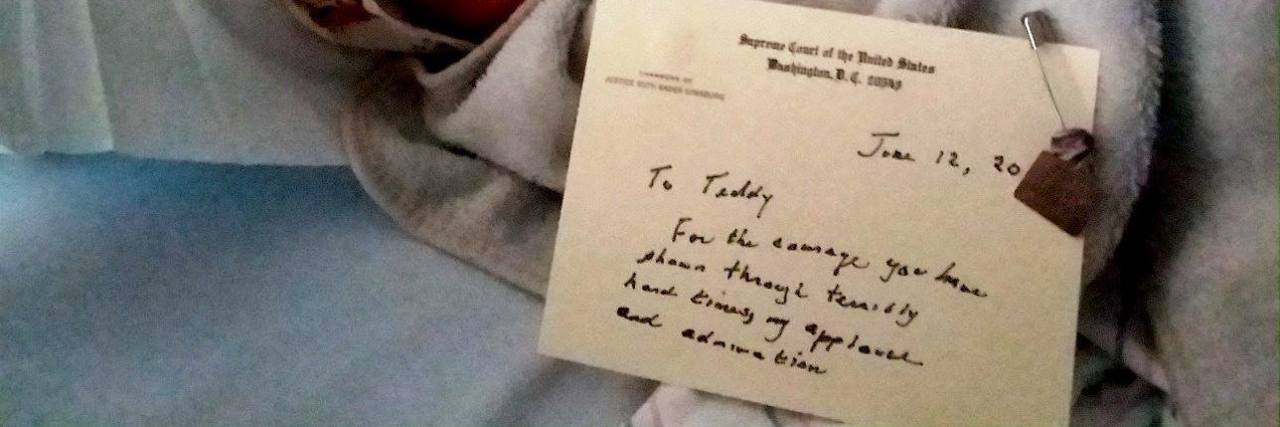 Supreme Court of the United States
Washington, D. C. 20543
CHAMBERS OF
JUSTICE RUTH BADER GINSBURG
June 12, 20
To Teddy
For the courage you have
shown through terribly
hard times, my applause
and admiration